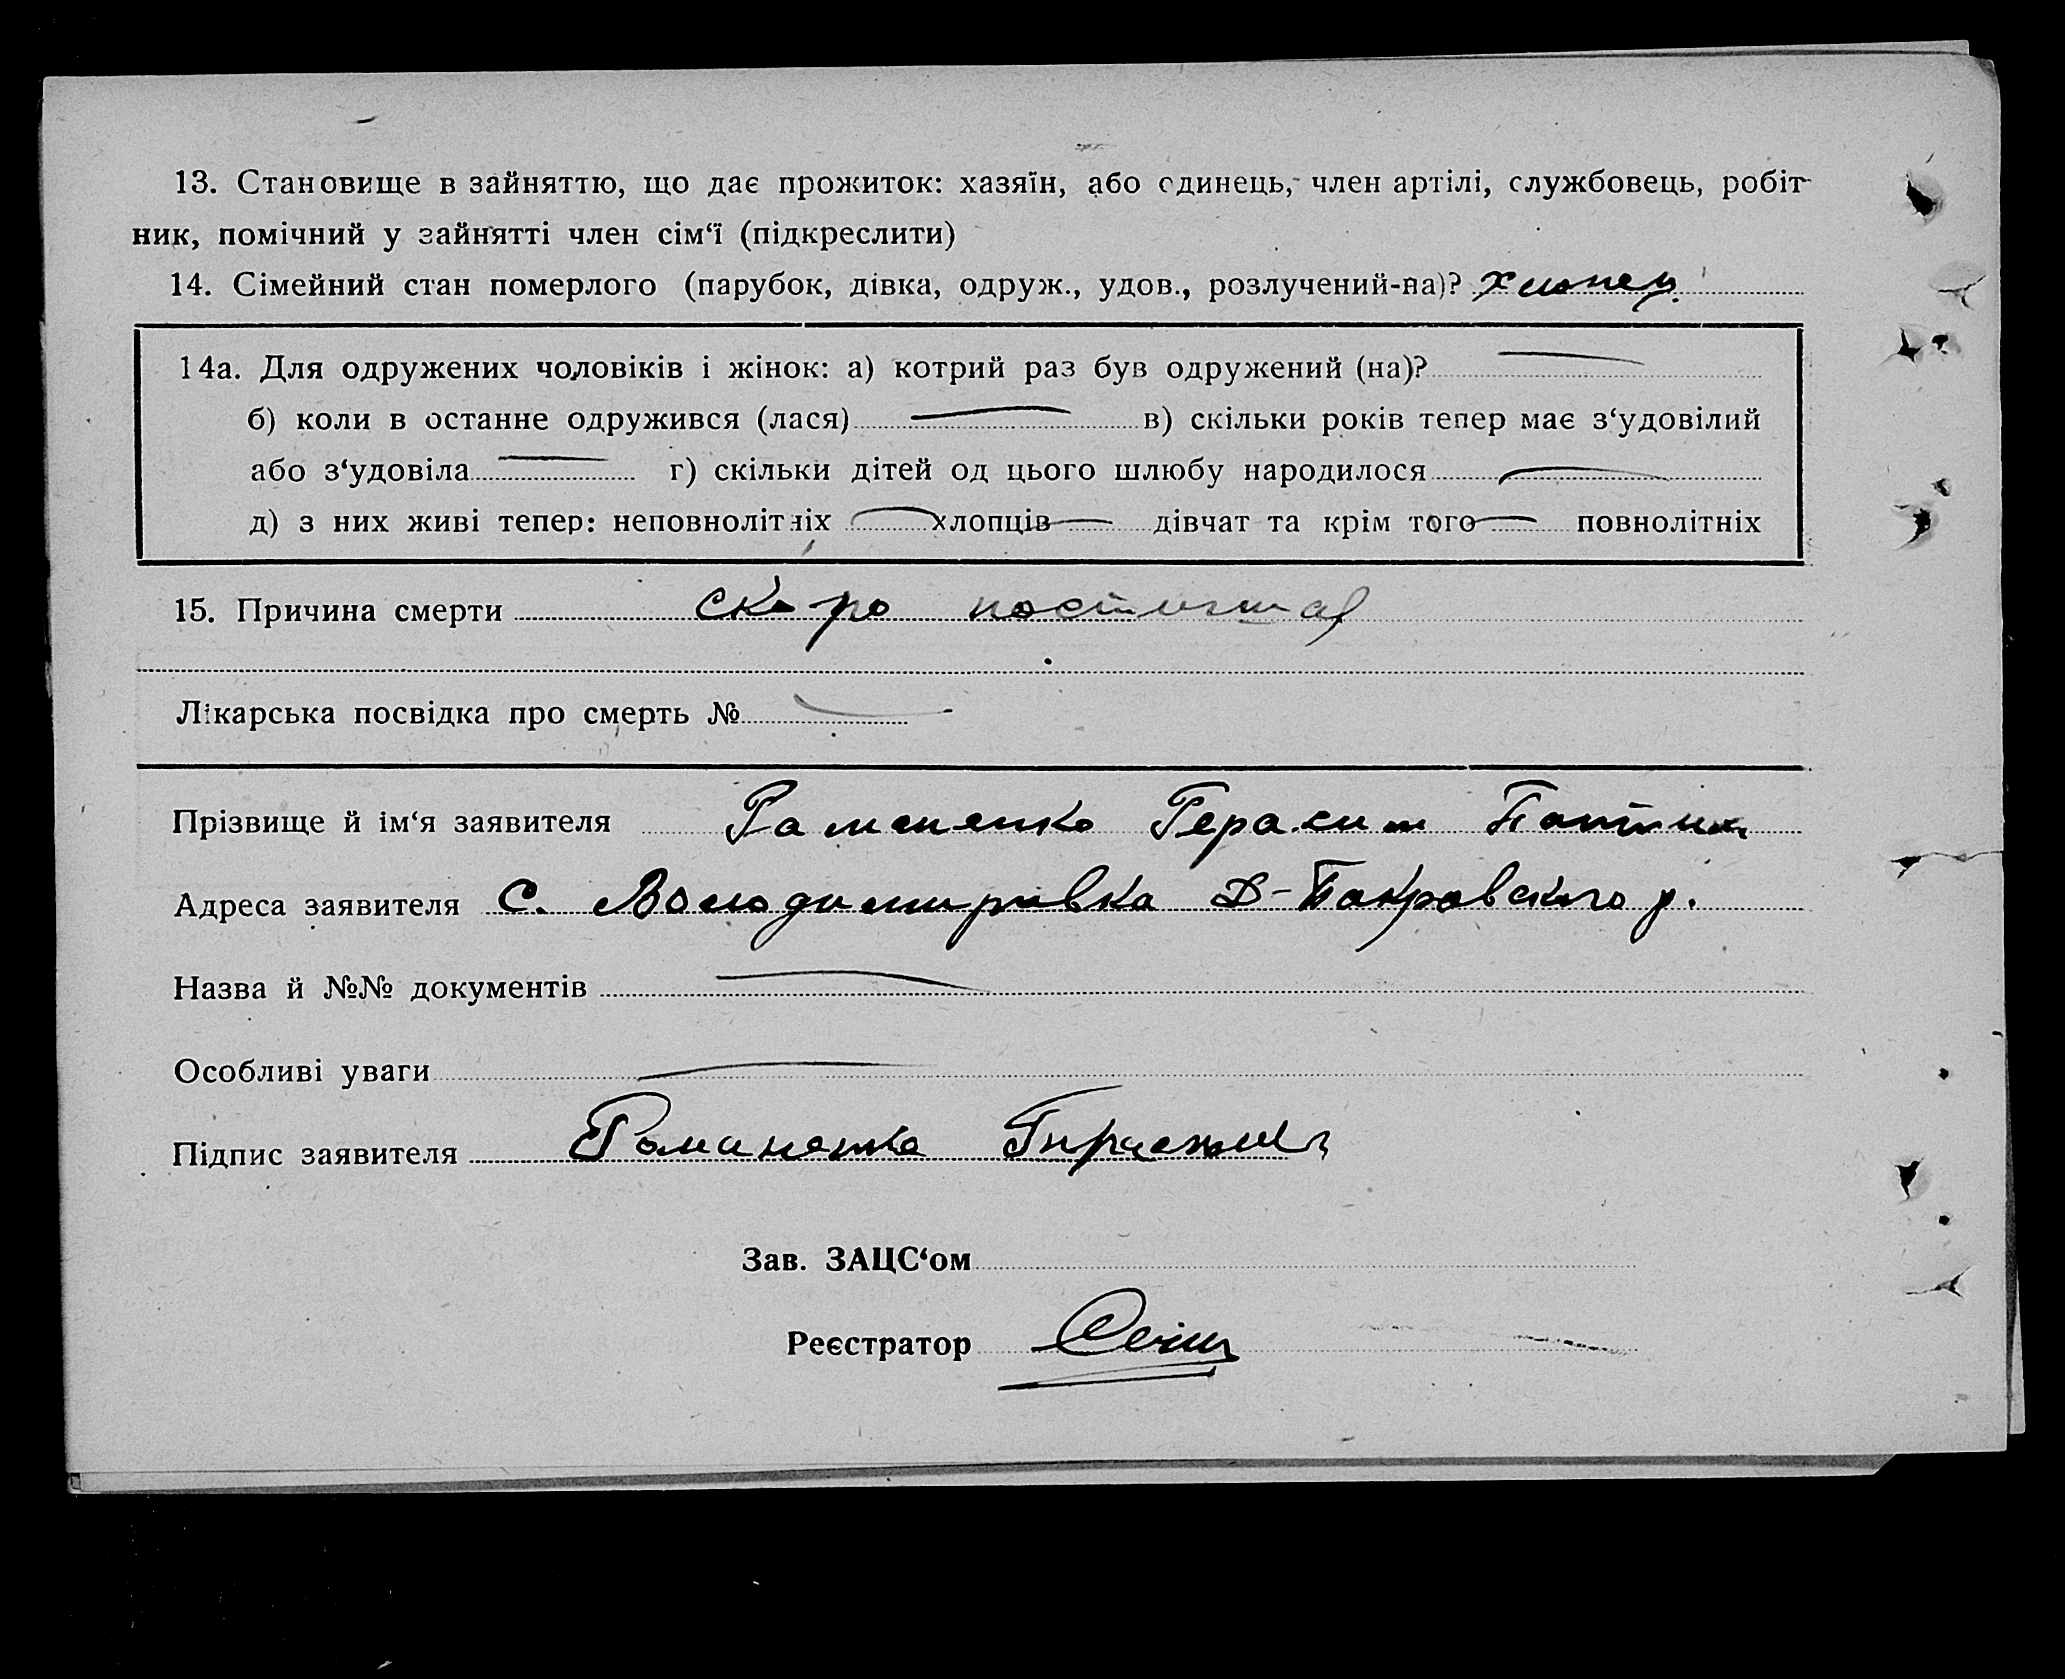 13. Становище в зайняттю, що дає прожиток: хазяїн, або єдинець, член артілі, службовець, робіт-
ник, помічний у зайнятті член сім‘ї (підкреслити)
14. Сімейний стан померлого (парубок, дівка, одруж., удов., розлучений-на)? хлопец
14а. Для одружених чоловіків і жінок: а) котрий раз був одружений (на)? —
б) коли в останне одружився (лася) — в) скільки років тепер має з‘удовілий
або з‘удовіла — г) скільки дітей од цього шлюбу народилося —
д) з них живі тепер: неповнолітніх — хлопців — дівчат та крім того — повнолітніх
15. Причина смерти скоро постижная
Лікарська посвідка про смерть № —
Прізвище й ім‘я заявителя Рамененко Герасим
Адреса заявителя С. Володимирівка Д-Покровского р.
Назва й №№ документів —
Особливі уваги —
Підпис заявителя Романенко
Зав. ЗАЦС‘ом
Реєстратор